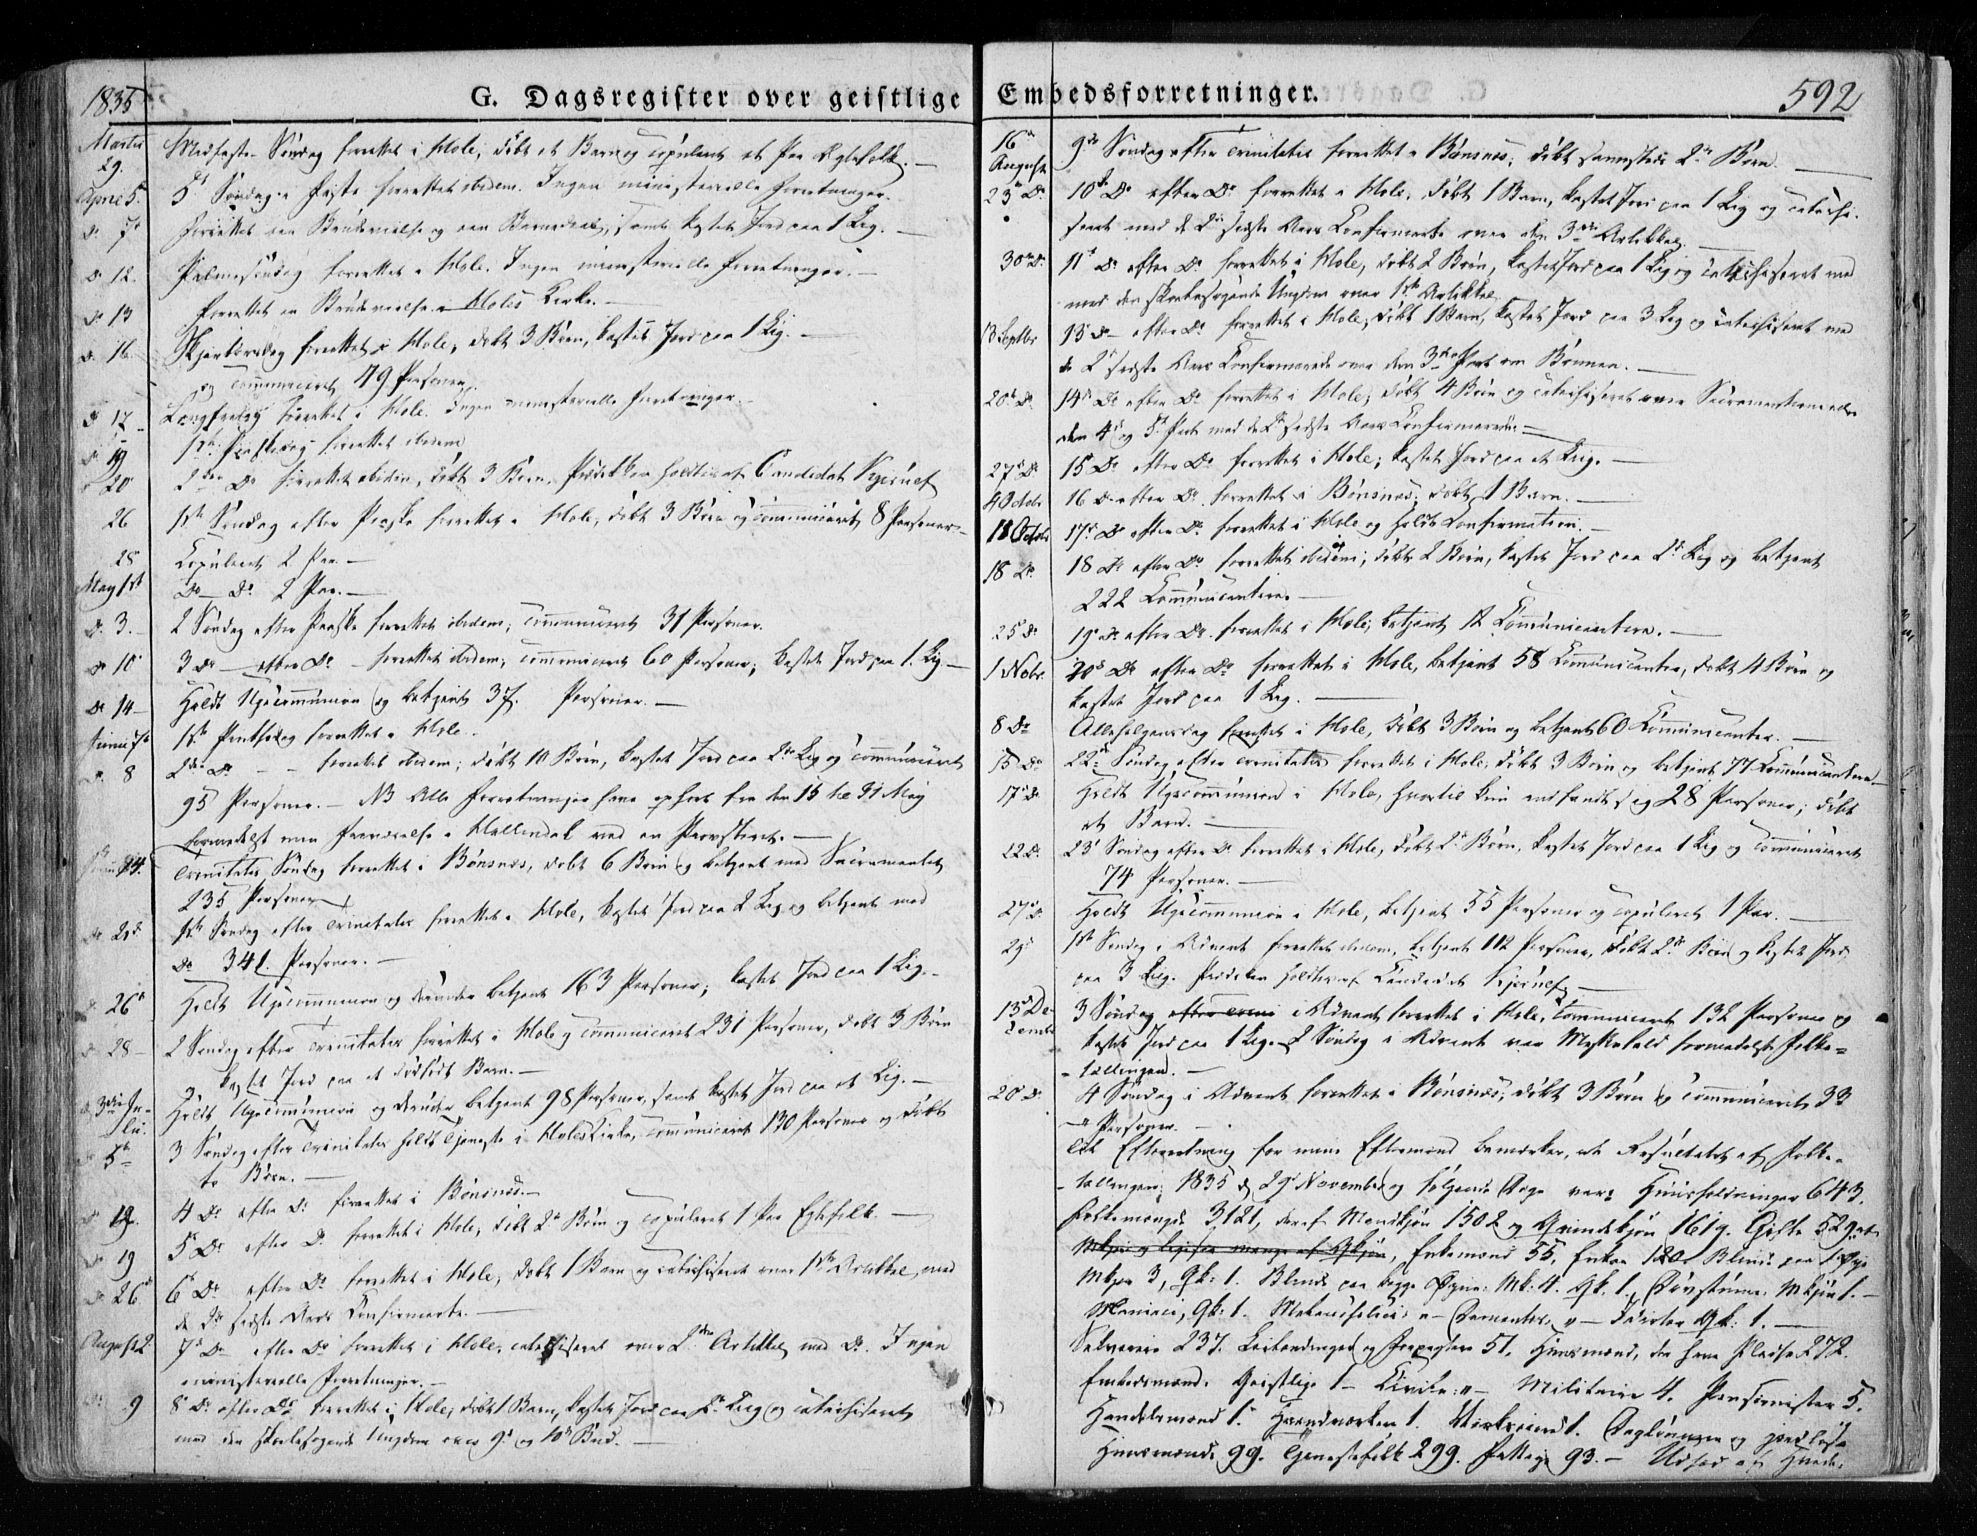 1835
G. Dagsregister over geistlige
Martii 29. Midfaste Søndag forrettet i Hole, døbt et Barn og copuleret et Par Ægtefolk. —
April 5. 5te Søndag i Faste forrettet ibidem. Ingen ministerielle Forretninger.
Do 7de Forrettet en Brudevielse og en Barnedaab, samt kastet Jord paa 1 Lig. —
Do 12. Palmesøndag forrettet i Hole. Ingen ministerielle Forretninger. —
Do 13 Forrettet en Brudevielse i Holes Kirke. —
Do 16 Skjertorsdag forrettet i Hole, døbt 3 Børn, kastet Jord paa 1 Lig. —
og communiceret 49 Personer.
Do 17 Langfredag forrettet i Hole. Ingen ministerielle Forretninger.
Do 19 1ste Paaskedag forrettet ibidem
20 2den Do forrettet ibidem, døbt 3 Børn. Prædikken holdtes af Candidat Kjerulf
26 1ste Søndag efter Paaske forrettet i Hole, døbt 3 Børn og communiceret 8 Personer —
28 Copuleret 2 Par. —
May 1ste Do Do 2 Par. —
Do 3. 2 Søndag efter Paaske forrettet ibidem, communiceret 31 Personer.
Do 10 3 Do efter Do forrettet ibidem; communiceret 60 Personer; kastet Jord paa 1 Lig —
Do 14 Holdt Ugecommunion og betjent 37 Personer. —
Junii 7de 1ste Pintsedag forrettet i Hole.
Do 8 2den Do — forrettet ibidem; døbt 10 Børn, kastet Jord paa 2de Lig og communiceret
95 Personer. — NB Alle Forretninger have ophørt fra den 15 til 31 May
formedelst min Fraværelse i Hallendal ved en Provsteret. —
Junii 14. Trinitatis Søndag forrettet i Bønsnes, døbt 6 Børn og betjent med Sacramentet
235 Personer
Do 21de 1ste Søndag efter Trinitatis forrettet i Hole, kastet Jord paa 2 Lig og betjent med
Do 341 Personer. —
26de Holdt Ugecommunion og derunder betjent 163 Personer; kastet Jord paa 1 Lig. —
28 2 Søndag efter Trinitatis forrettet i Hole og communiceret 231 Personer, døbt 3 Børn
og kastet Jord paa et dødfødt Barn. —
3die Juli. Holdt Ugecommunion og derunder betjent 98 Personer, samt kastet Jord paa et Lig. —
5te 3 Søndag efter Trinitatis holdt Tjeneste i Holes Kirke, communiceret 130 Personer og døbt
to Børn. —
12. 4 Do efter Do forrettet i Bønsnes. —
19 5te Do efter Do forrettet i Hole, døbt 2de Børn og copuleret 1 Par Egtefolk. —
26de 6te Do efter Do forrettet i Hole, døbt 1 Barn og catechiseret over 1ste Artikkel med
de 2de sidste Aars Confirmerte. —
August 2 7de Do efter Do forrettet i Hole, catechiseret over 2den Artikkel med Do. Ingen
ministerielle Forretninger. —
9 8 Do efter Do forrettet i Hole, døbt 1 Barn, kastet Jord paa 2de Lig og catechiseret
med den skolesøgende Ungdom over 9de og 10de Bud. —
Embedsforretninger.
592
16de August 9de Søndag efter Trinitatis forrettet i Bønsnes, døbt sammesteds 2de Børn. —
23de Do 10de Do efter Do forrettet i Hole, døbt 1 Barn, kastet Jord paa 1 Lig og catechi-
seret med de 2de sidste Aars Confirmerte over den 3die Artikkel. —
30te Do 11te Do efter Do forrettet i Hole, døbt 2 Børn, kastet Jord paa 1 Lig og catechiseret med
med den skolesøgende Ungdom over 1ste Artikkel
13 Septbr 13de Do efter Do forrettet i Hole, døbt 1 Barn, kastet Jord paa 3 Lig og catechiseret med
de 2de sidste Aars Confirmerede over den 3die Part om Bønnen. —
20de Do 14de Do efter Do forrettet i Hole, døbt 4 Børn og catechiseret over Sacramenterne eller
den 4de og 5te Part med de 2de sidste Aars Confirmerede —
27de Do 15 Do efter Do forrettet i Hole; kastet Jord paa et Lig. —
4 Octobr 16 Do efter Do forrettet i Bønsnes, døbt 1 Barn. —
11 Octobr 17de Do efter Do forrettet i Hole og holdt Confirmation. —
18 Do 18 Do efter Do forrettet ibidem; døbt 2 Børn, kastet Jord paa 2de Lig og betjent
222 Communicantere. —
25 Do 19de Do efter Do forrettet i Hole, betjent 12 Communicantere. —
1 Nobr. 20de Do efter Do forrettet i Hole, betjent 58 Communicanter, døbt 4 Børn og
kastet Jord paa 1 Lig. —
8 Do Allehelgensdag forrettet i Hole, døbt 3 Børn og betjent 60 Communicanter. —
15 Do 22de Søndag efter Trinitatis forrettet i Hole, døbt 3 Børn og betjent 77 Communicantere —
17de Do Holdt Ugecommunion i Hole, hvortil kun indfandt sig 28 Personer; døbt
et Barn. —
22 Do 23de Søndag efter Do forrettet i Hole, døbt 2de Børn, kastet Jord paa 1 Lig og communiceret
74 Personer. —
27de Do Holdt Ugecommunion i Hole, betjent 55 Personer og copuleret 1 Par. —
29de 1ste Søndag i Advent forrettet ibidem, betjent 112 Personer, døbt 2de Børn og kastet Jord
paa 3 Lig. Prædiken holdtes af Candidat Kjerulf —
13de Decembr 3 Søndag efter Trini i Advent forrettet i Hole, communiceret 132 Personer og
kastet Jord paa 1 Lig. 2 Søndag i Advent var Messefald formedelst Folke-
-tællingen. —
20de Do 4 Søndag i Advent forrettet i Bønsnes, døbt 3 Børn og communiceret 33
Personer. —
Til Efterretning for mine Eftermænd bemærkes, at Resultatet af Folke-
-tællingen 1835 d 29de November og følgende Dage var: Huusholdninger 643.
Folkemængde 3121, deraf Mandkjøn 1502 og Qvindekjøn 1619. Gifte 529 at
Mkjøn og ligesaa mange af Qkjøn, Enkemænd 55, Enker 120. Blinde paa 1 Øye
Mkjøn 3, Qk: 1. Blinde paa begge Øyne: Mk: 4. Qk. 1. Døvstumme: Mkjøn 1. —
Maniaci, Qk: 1. Melancholici „ — Dementes „ — Idioter Qk: 1. —
Selveiere 237. Leilændinger og Forpagtere 51. Huusmænd, der have Pladse 272.
Embedsmænd: Geistlige 1 — Civile: „ — Militaire 4. Pensionister 5.
Handelsmænd 1. Haandværkere 1. Værkseiere 1. Daglønnere og jordløse
Huusmænd 99. Tjenestefolk 299. Fattige 93. — Udsæd af Hvede: